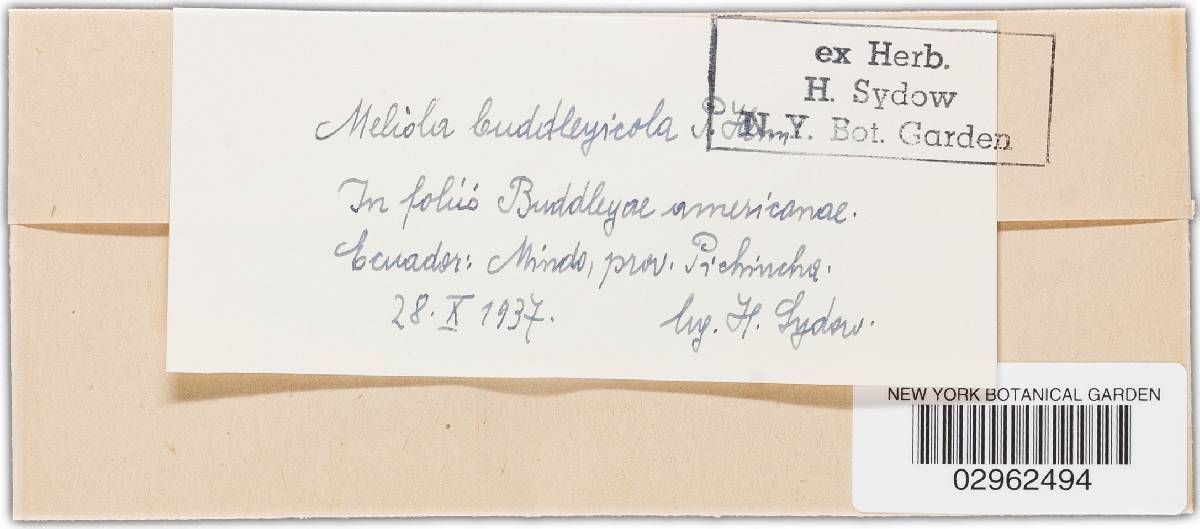 ex Herb.
H. Sydow
N.Y. Bot. Garden
Meliola buddleyicola P. Henn.
In foliis Buddleyae americanae.
Ecuador: Mindo, prov. Pichincha.
28. X 1937. leg. H. Sydow.
NEW YORK BOTANICAL GARDEN
02962494